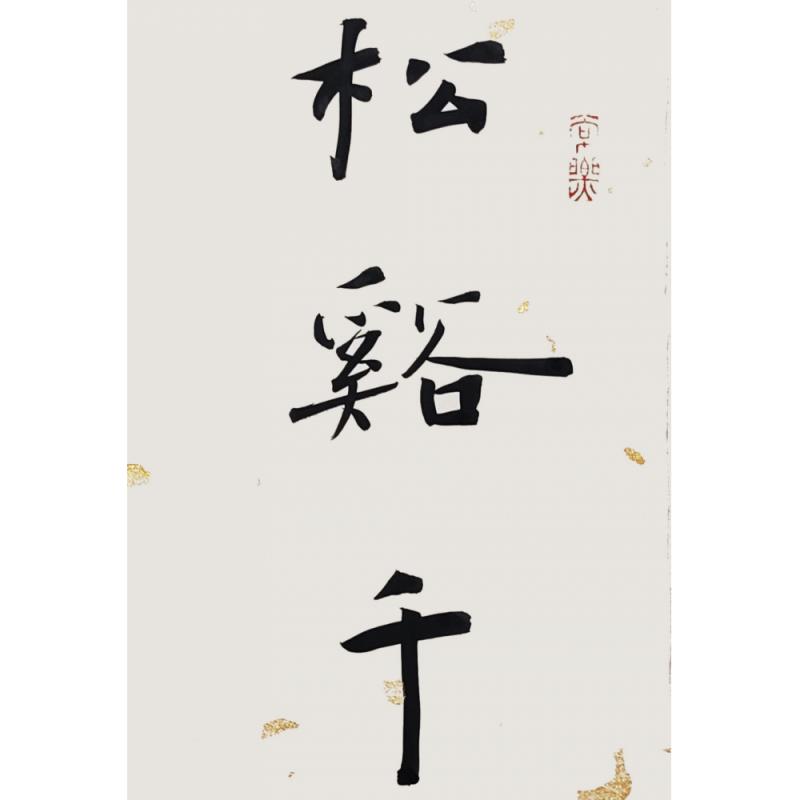 松谿千